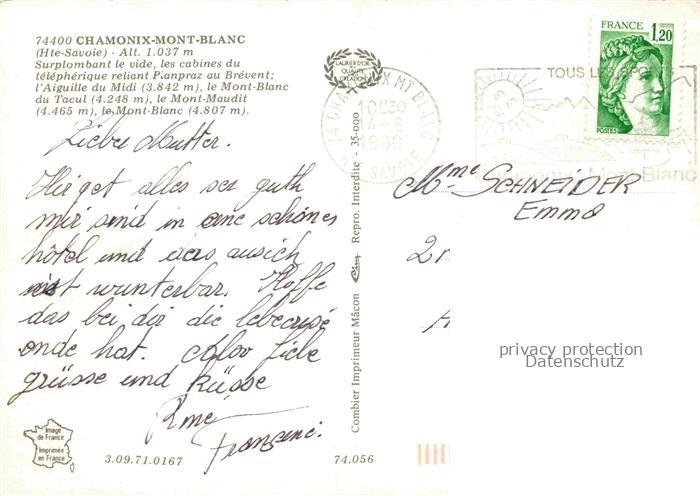 74400 CHAMONIX-MONT-BLANC
(Hte-Savoie) - Alt. 1.037 m
Surplombant le vide, les cabines du
téléphérique reliant Planpraz au Brévent;
l'Aiguille du Midi (3.842 m), le Mont-Blanc
du Tacul (4.248 m), le Mont-Maudit
(4.465 m), le Mont-Blanc (4.807 m).
Lieber Mutter.
Hir get alles ser guth
mir sind in one schönes
hôtel und das ausich
ist wunterbar. Hoffe
das bei dir die
onde hat. Liebe
grüsse und küsse
Image
de France
Imprimée
en France
3.09.71.0167
74.056
LAURIER D'OR
QUALITE
CREATION
Combier Imprimeur Mâcon Cim Repro. Interdite - 35-000
74 CHAMONIX MT BLANC
10H30
14-8
1980
HTE SAVOIE
TOUS LES SPO
Chamonix-Mont-Blanc
FRANCE
1,20
POSTES
Mme SCHNEIDER
Emma
2
privacy protection
Datenschutz